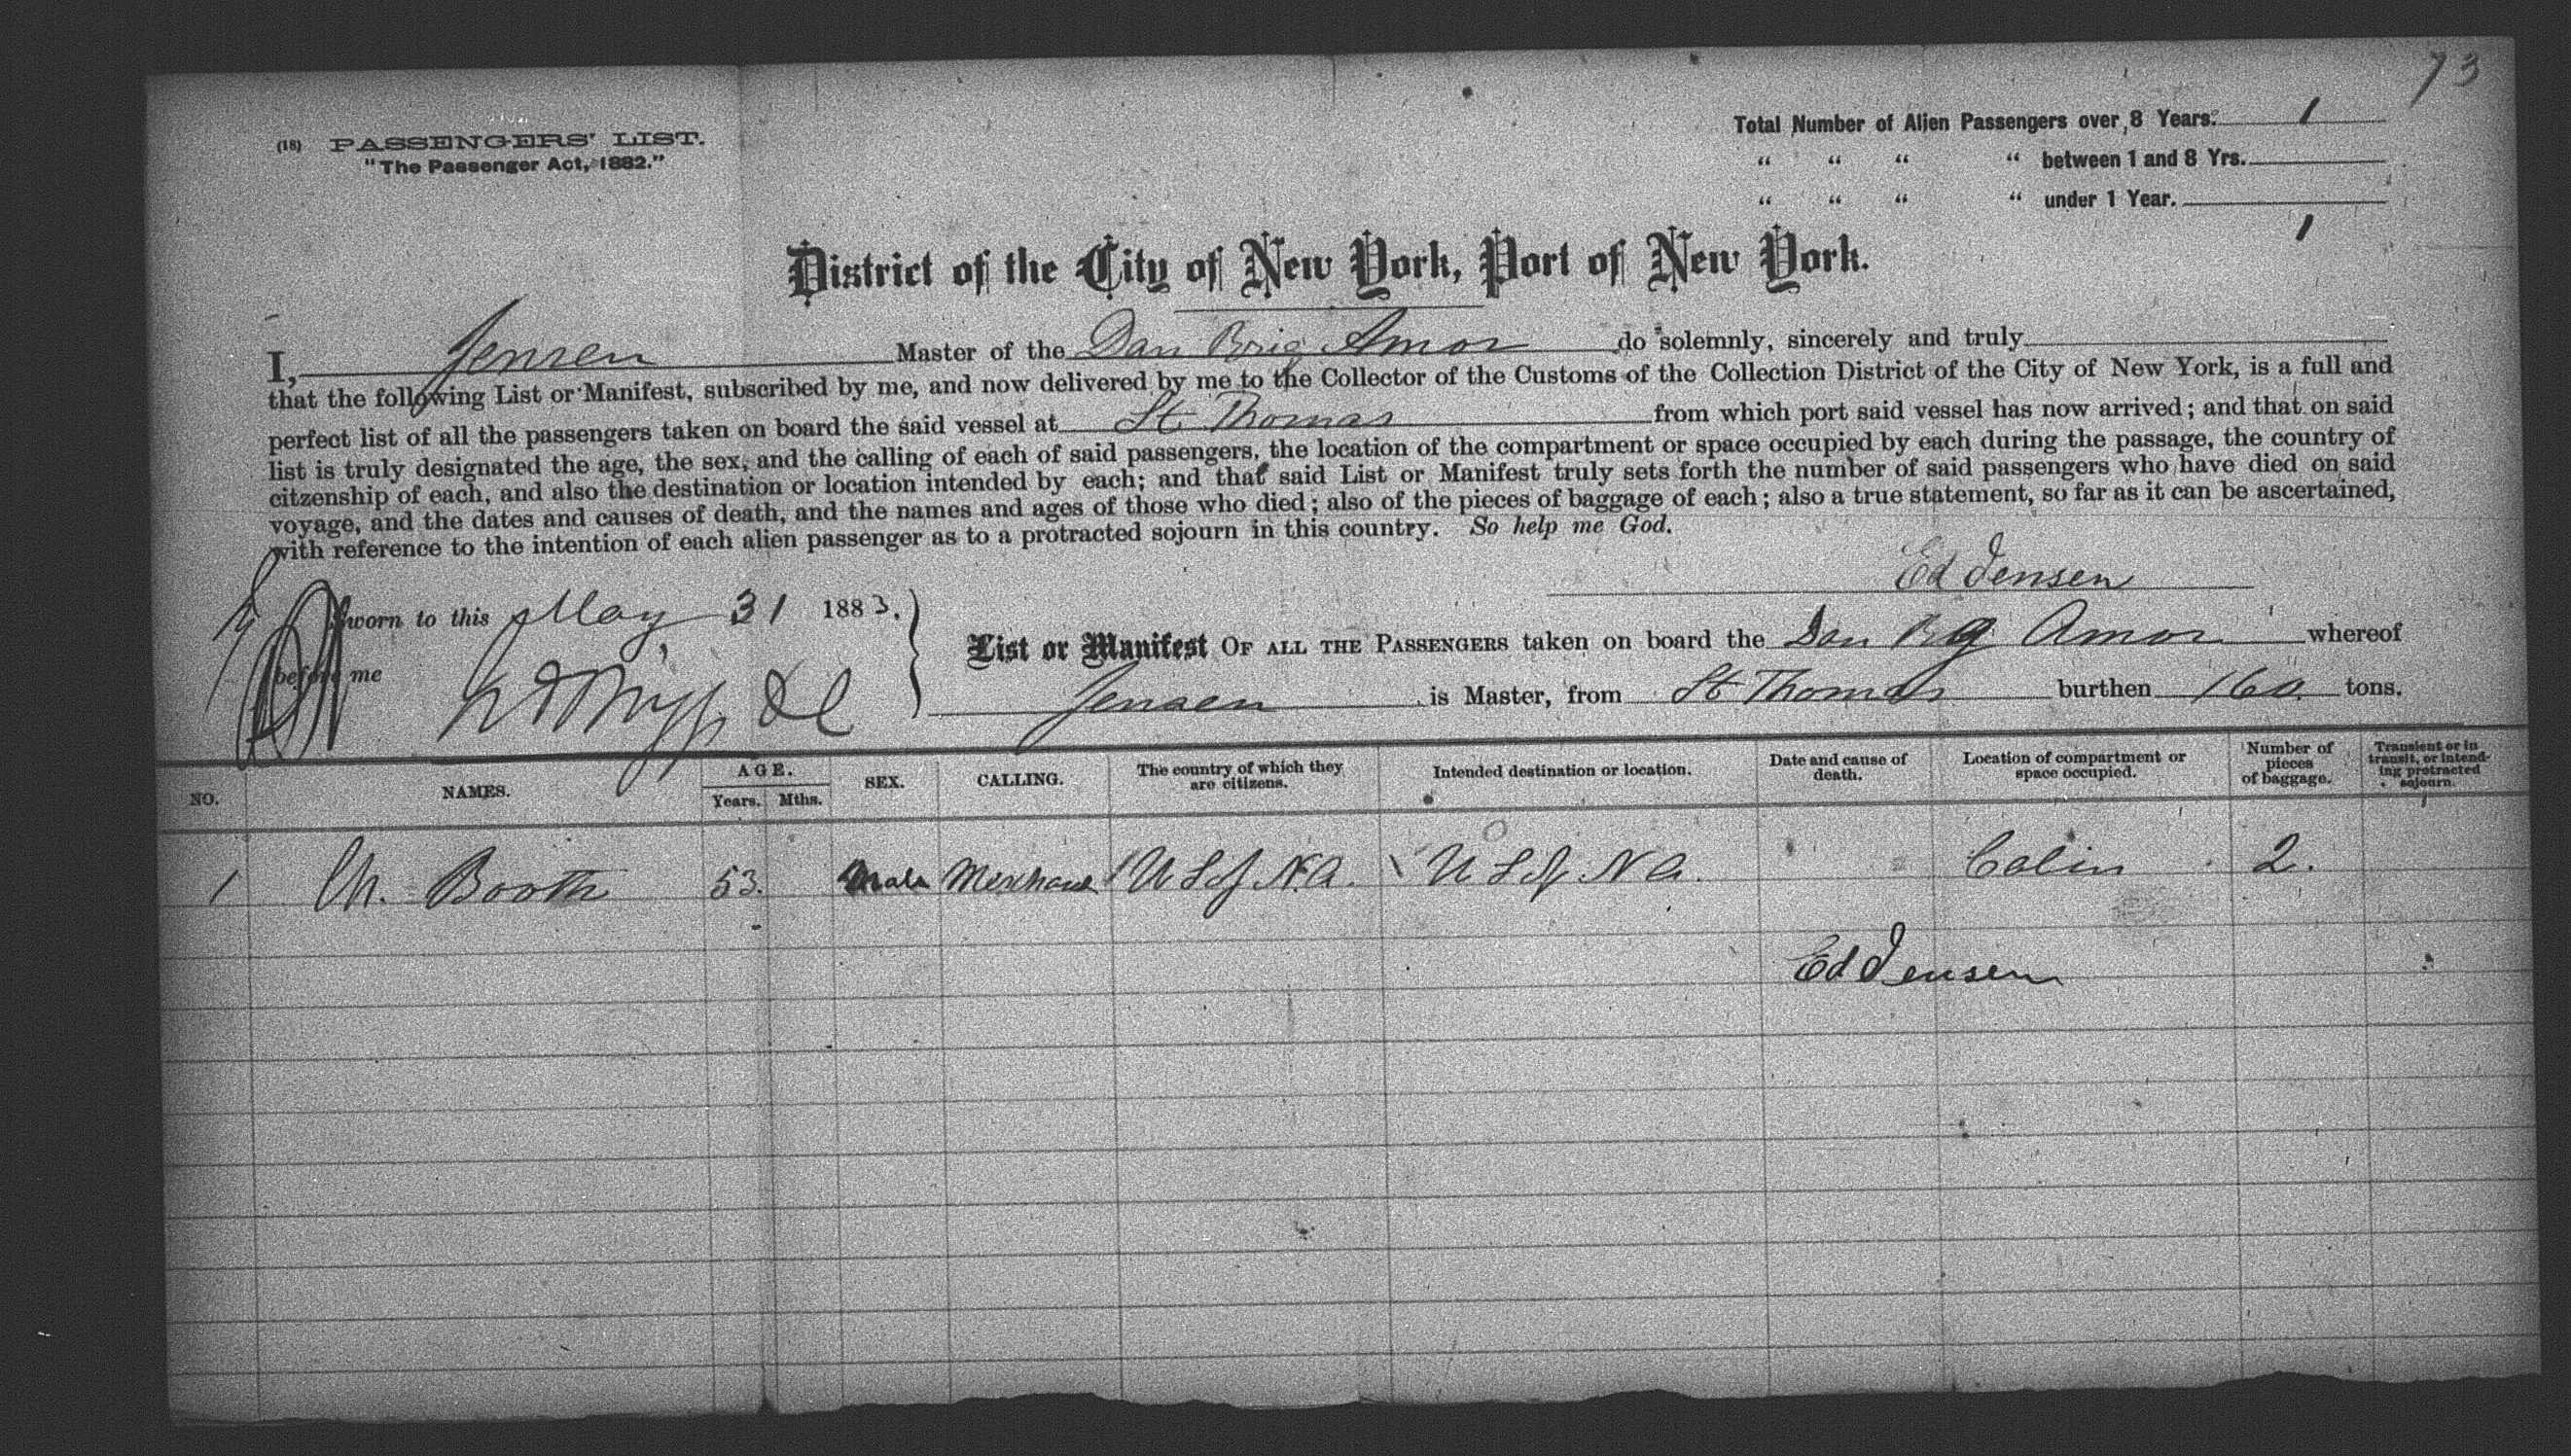 73
(18) PASSENGERS' LIST.
"The Passenger Act, 1882."
Total Number of Alien Passengers over 8 Years. 1
“ “ “ “ between 1 and 8 Yrs.
“ “ “ “ under 1 Year.
1
District of the City of New York, Port of New York.
I, Jensen Master of the Dan Brig Amor do solemnly, sincerely and truly
that the following List or Manifest, subscribed by me, and now delivered by me to the Collector of the Customs of the Collection District of the City of New York, is a full and
perfect list of all the passengers taken on board the said vessel at St. Thomas from which port said vessel has now arrived; and that on said
list is truly designated the age, the sex, and the calling of each of said passengers, the location of the compartment or space occupied by each during the passage, the country of
citzenship of each, and also the destination or location intended by each; and that said List or Manifest truly sets forth the number of said passengers who have died on said
voyage, and the dates and causes of death, and the names and ages of those who died; also of the pieces of baggage of each; also a true statement, so far as it can be ascertained,
with reference to the intention of each alien passenger as to a protracted sojourn in this country. So help me God.
Ed Jensen
Sworn to this May 31 1883.
before me
List or Manifest OF ALL THE PASSENGERS taken on board the Dan Bg Amor whereof
Jensen is Master, from St Thomas burthen 160 tons.
NO. NAMES. AGE. Years. Mths. SEX. CALLING. The country of which they are citizens. Intended destination or location. Date and cause of death. Location of compartment or space occupied. Number of pieces of baggage. Transient or in transit, or intending protracted sojourn.
1 Ch. Booth 53. Male Merchant U S of N.A. U S of N A. Cabin 2.
Ed Jensen